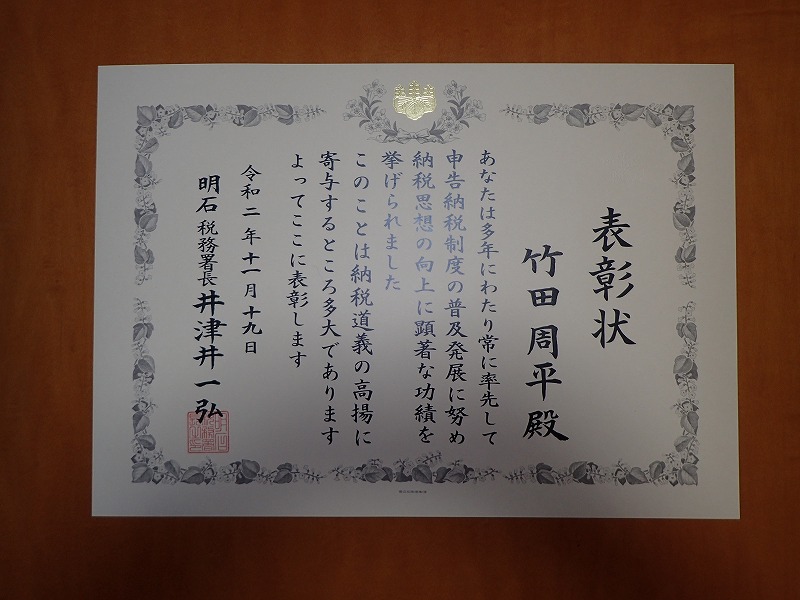 表彰状
竹田周平殿
あなたは多年にわたり常に率先して
申告納税制度の普及発展に努め
納税思想の向上に顕著な功績を
挙げられました
このことは納税道義の高揚に
寄与するところ多大であります
よってここに表彰します
令和二年十一月十九日
明石税務署長井津井一弘